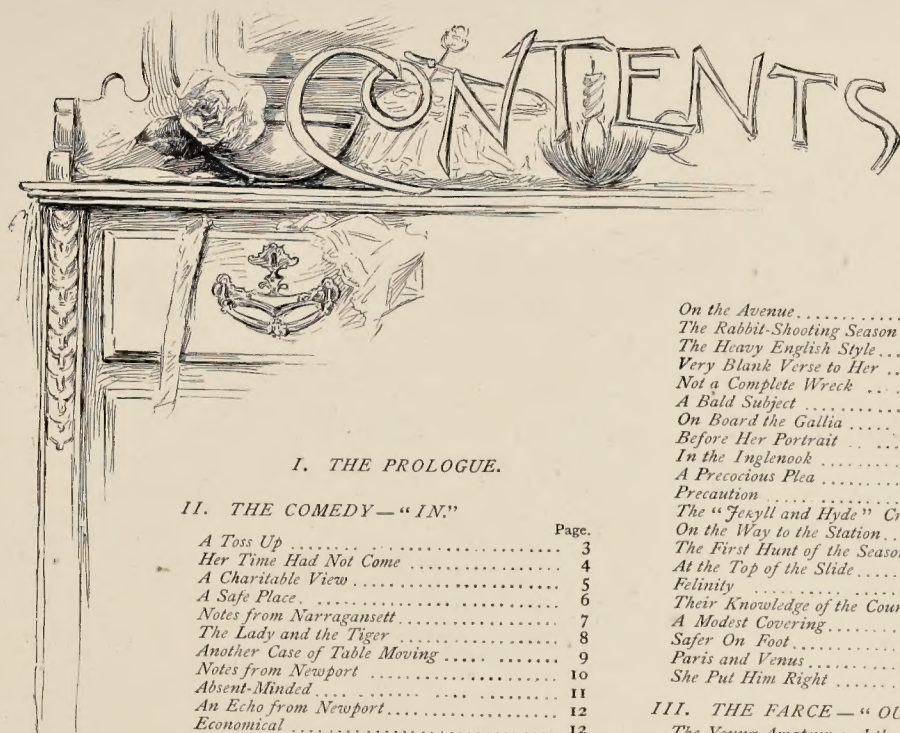 CONTENTS
I. THE PROLOGUE.
II. THE COMEDY—“IN.”
Page.
A Toss Up .......... 3
Her Time Had Not Come .......... 4
A Charitable View .......... 5
A Safe Place .......... 6
Notes from Narragansett .......... 7
The Lady and the Tiger .......... 8
Another Case of Table Moving .......... 9
Notes from Newport .......... 10
Absent-Minded .......... 11
An Echo from Newport .......... 12
Economical .......... 12
On the Avenue
The Rabbit-Shooting Season
The Heavy English Style
Very Blank Verse to Her
Not a Complete Wreck
A Bald Subject
On Board the Gallia
Before Her Portrait
In the Inglenook
A Precocious Plea
Precaution
The “Jekyll and Hyde”
On the Way to the Station
The First Hunt of the
At the Top of the Slide
Felinity
Their Knowledge of the
A Modest Covering
Safer On Foot
Paris and Venus
She Put Him Right
III. THE FARCE—“